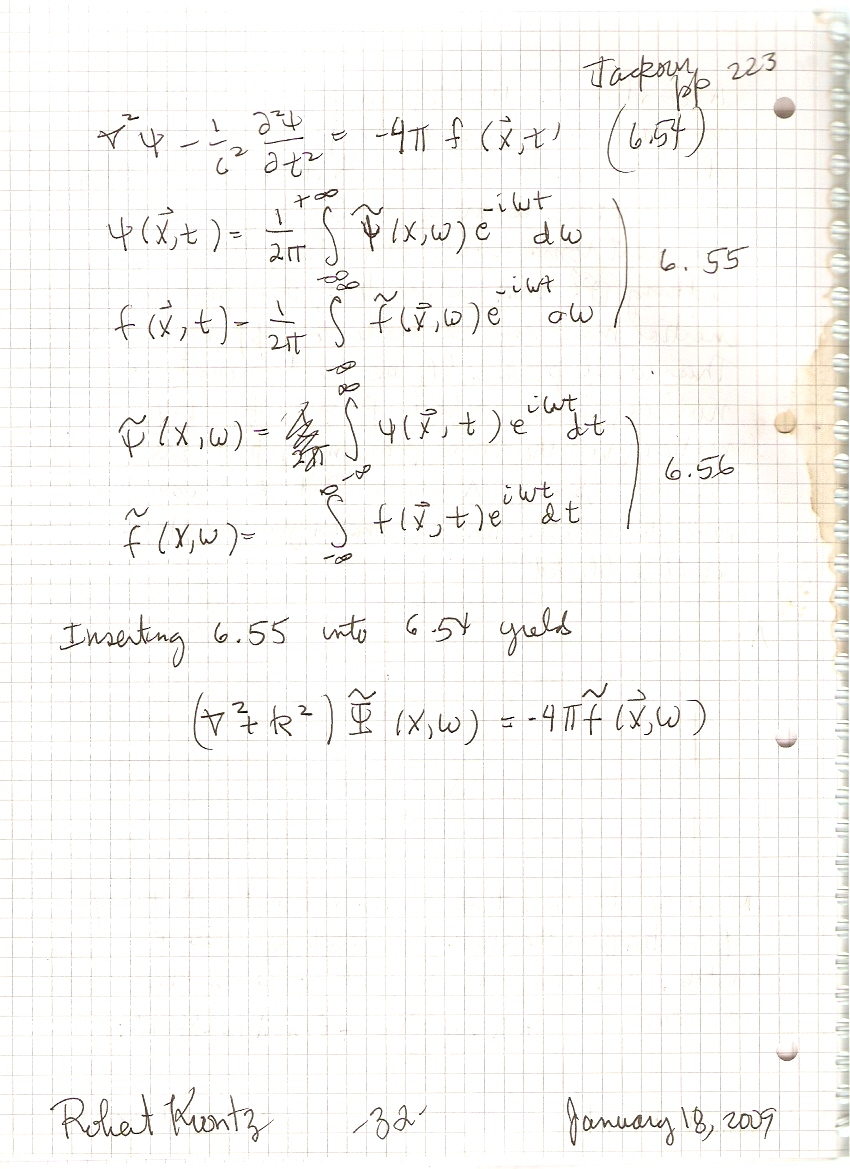 Jackson
pp 223
∇²ψ - 1/c² ∂²ψ/∂t² = -4π f (x⃗,t) (6.54)
ψ(x⃗,t) = 1/2π ∫_{-∞}^{+∞} ψ̃(x,ω) e^{-iωt} dω
6.55
f(x⃗,t) = 1/2π ∫_{-∞}^{∞} f̃(x⃗,ω) e^{-iωt} dω
ψ̃(x,ω) = ∫_{-∞}^{∞} ψ(x⃗,t) e^{iωt} dt
6.56
f̃(x,ω) = ∫_{-∞}^{∞} f(x⃗,t) e^{iωt} dt
Inserting 6.55 into 6.54 yields
(∇² + k²) Ψ̃ (x,ω) = -4π f̃ (x⃗,ω)
Robert Kuntz -32- January 18, 2009